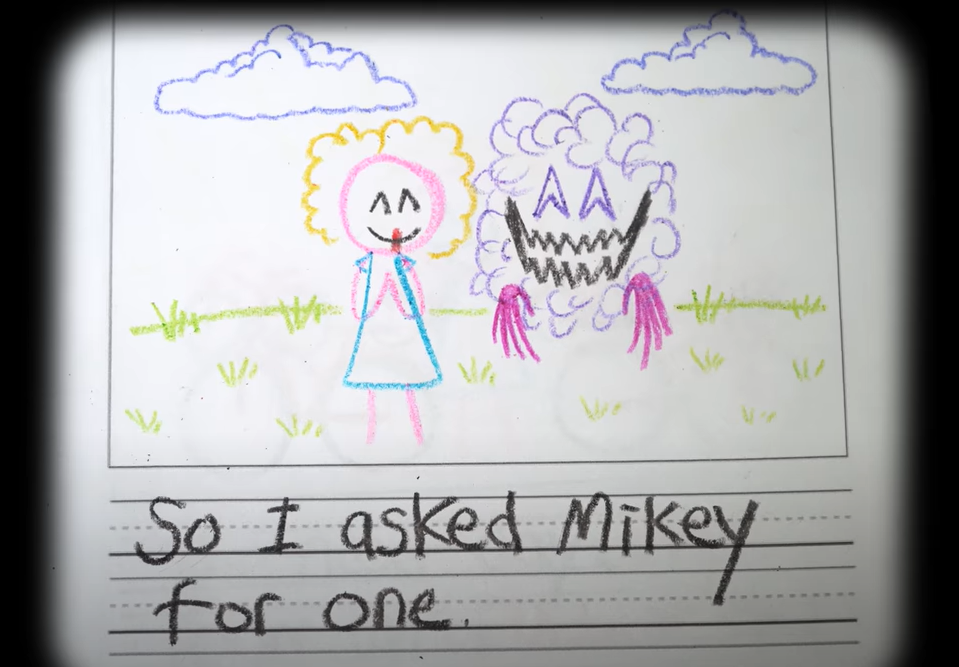 So I asked Mikey
for one.